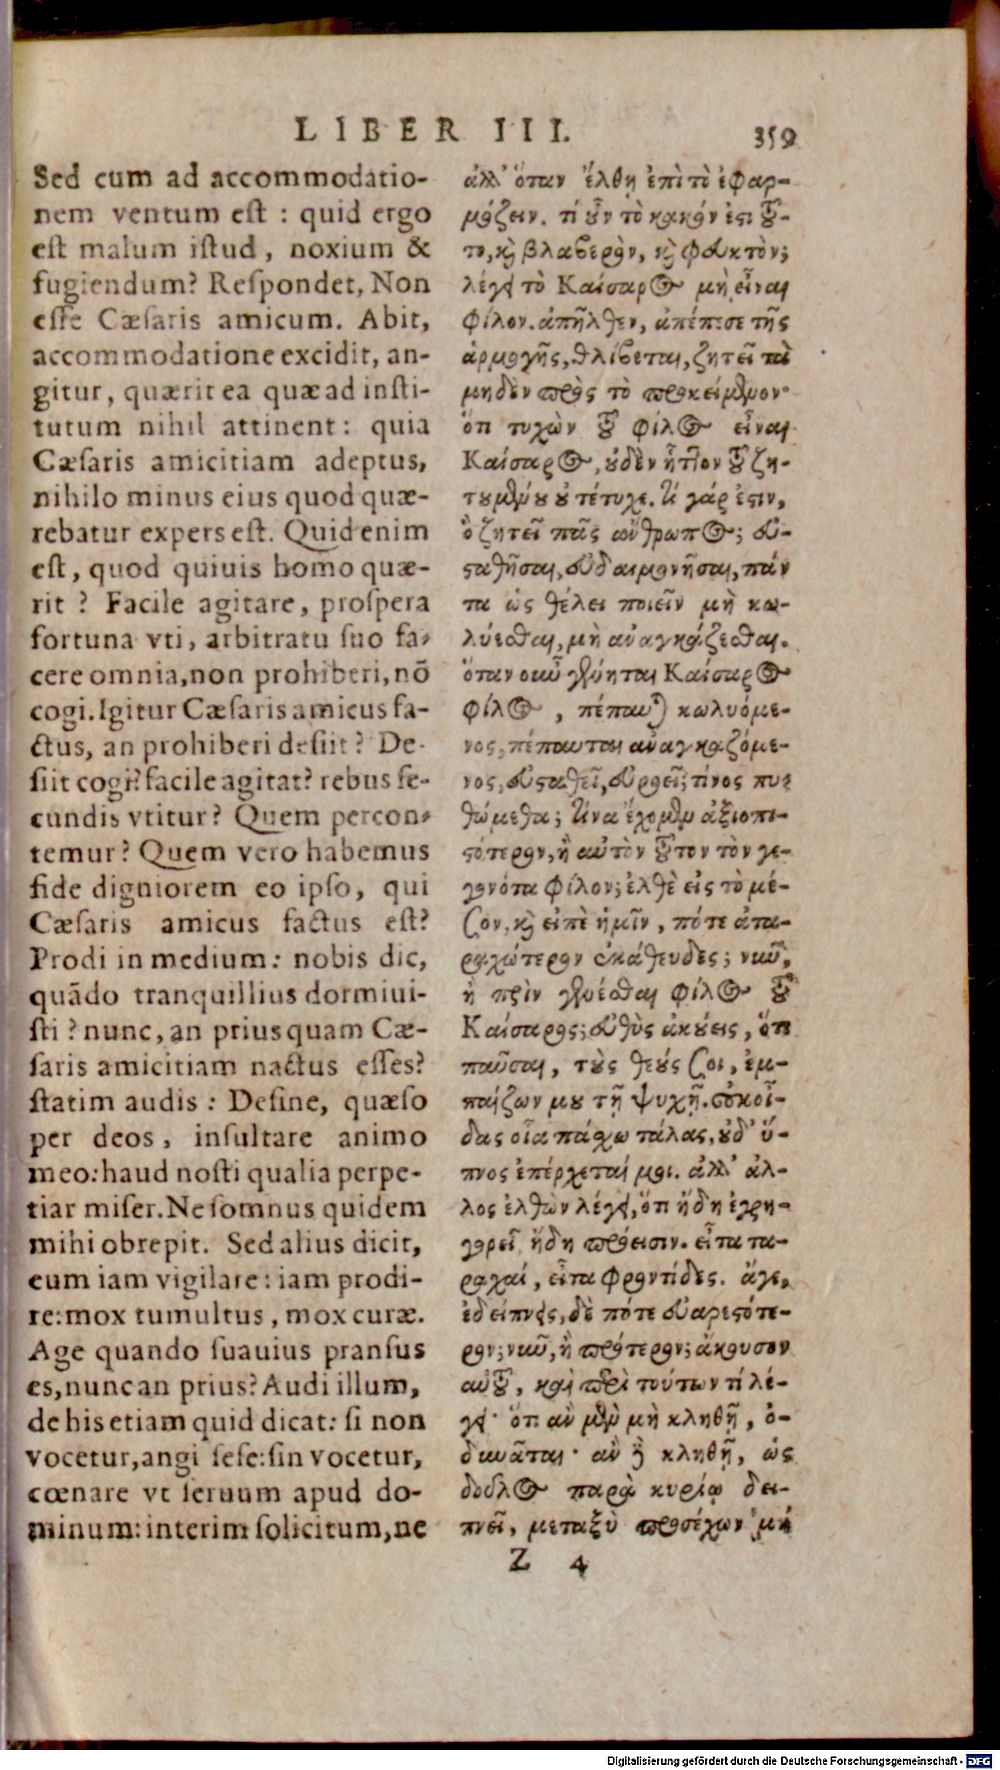 LIBER III. 359
Sed cum ad accommodatio-
nem ventum est : quid ergo
est malum istud, noxium &
fugiendum? Respondet, Non
esse Cæsaris amicum. Abit,
accommodatione excidit, an-
gitur, quærit ea quæ ad insti-
tutum nihil attinent: quia
Cæsaris amicitiam adeptus,
nihilo minus eius quod quæ-
rebatur expers est. Quid enim
est, quod quiuis homo quæ-
rit ? Facile agitare, prospera
fortuna vti, arbitratu suo fa-
cere omnia, non prohiberi, nõ
cogi. Igitur Cæsaris amicus fa-
ctus, an prohiberi desiit? De-
siit cogi? facile agitat? rebus se-
cundis vtitur? Quem percon-
temur? Quem vero habemus
fide digniorem eo ipso, qui
Cæsaris amicus factus est?
Prodi in medium: nobis dic,
quãdo tranquillius dormiui-
sti ? nunc, an priusquam Cæ-
saris amicitiam nactus esses?
statim audis : Desine, quæso
per deos, insultare animo
meo: haud nosti qualia perpe-
tiar miser. Ne somnus quidem
mihi obrepit. Sed alius dicit,
eum iam vigilare: iam prodi-
re: mox tumultus, mox curæ.
Age quando suauius pransus
es, nunc an prius? Audi illum,
de his etiam quid dicat: si non
vocetur, angi sese: sin vocetur,
cœnare vt seruum apud do-
minum: interim solicitum, ne
ἀλλ' ὅταν ἔλθῃ ἐπὶ τὸ ἐφαρ-
μόζειν. τί οὖν τὸ κακόν ἐστι τοῦ-
το, καὶ βλαβερὸν, καὶ φευκτὸν;
λέγει τὸ Καίσαρος μὴ εἶναι
φίλον. ἀπῆλθεν, ἀπέπεσε τῆς
ἁρμογῆς, θλίβεται, ζητεῖ τὰ
μηδὲν πρὸς τὸ προκείμενον·
ὅτι τυχὼν τοῦ φίλος εἶναι
Καίσαρος, οὐδὲν ἧττον τοῦ ζη-
τουμένου οὐ τέτυχε. τί γάρ ἐστιν,
ὃ ζητεῖ πᾶς ἄνθρωπος; εὐ-
σταθῆσαι, εὐδαιμονῆσαι, πάν
τα ὡς θέλει ποιεῖν μὴ κω-
λύεσθαι, μὴ ἀναγκάζεσθαι.
ὅταν οὖν γένηται Καίσαρος
φίλος, πέπαυται κωλυόμε-
νος, πέπαυται ἀναγκαζόμε-
νος, εὐσταθεῖ, εὐροεῖ; τίνος πυ-
θώμεθα; τίνα ἔχομεν ἀξιοπι-
στότερον, ἢ αὐτὸν τοῦτον τὸν γε-
γονότα φίλον; ἐλθὲ εἰς τὸ μέ-
σον, καὶ εἰπὲ ἡμῖν, πότε ἀτα-
ραχώτερον ἐκάθευδες; νῦν,
ἢ πρὶν γενέσθαι φίλος τοῦ
Καίσαρος; εὐθὺς ἀκούεις, ὅτι
παῦσαι, τοὺς θεούς σοι, ἐμ-
παίζων μου τῇ ψυχῇ. οὐκ οἶ-
δας οἷα πάσχω τάλας, οὐδ' ὕ-
πνος ἐπέρχεταί μοι. ἀλλ' ἄλ-
λος ἐλθὼν λέγει, ὅτι ἤδη ἐγρη-
γορεῖ ἤδη πρόεισιν. εἶτα τα-
ραχαί, εἶτα φροντίδες. ἄγε,
ἐδείπνεις, δὲ πότε εὐαρεστότε-
ρον; νῦν, ἢ πρότερον; ἄκουσον
αὐτοῦ, καὶ περὶ τούτων τί λέ-
γει· ὅτι ἂν μὲν μὴ κληθῇ, ὀ-
δυνᾶται· ἂν δὲ κληθῇ, ὡς
δοῦλος παρὰ κυρίῳ δει-
πνεῖ, μεταξὺ προσέχων μή
Z 4
Digitalisierung gefördert durch die Deutsche Forschungsgemeinschaft - DFG